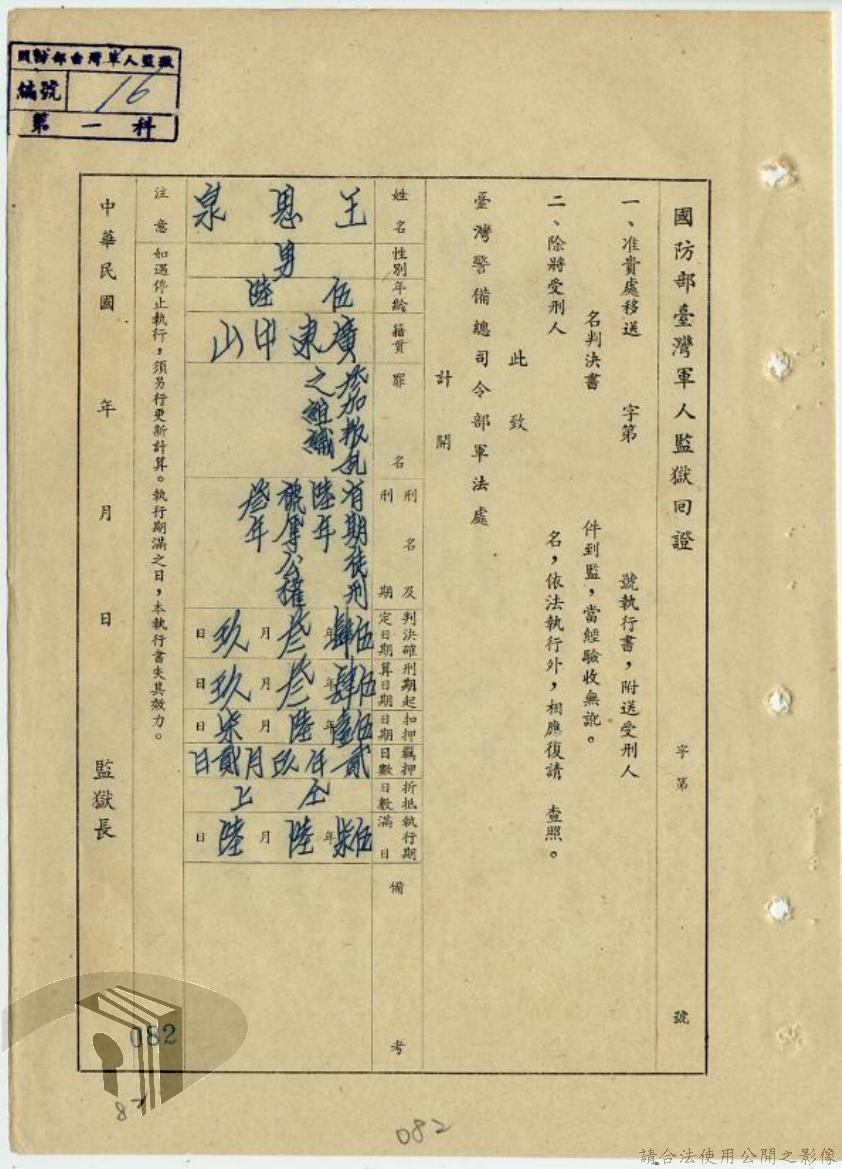 國防部台灣軍人監獄
編號 16
第一科
國防部臺灣軍人監獄回證 字第 號
一、准貴處移送 字第 號執行書，附送受刑人
名判決書 件到監，當經驗收無訛。
二、除將受刑人 名，依法執行外，相應復請 查照。
此致
臺灣警備總司令部軍法處
計開
姓名 王恩泉
性別 男
年齡 伍陸
籍貫 廣東中山
罪名 參加叛乱之組織
刑名及刑期 有期徒刑陸年褫奪公權叁年
判決確定日期 伍肆年叁月玖日
刑期起算日期 伍肆年叁月玖日
扣押日期 伍壹年陸月柒日
羈押日數 貳年玖月貳日
折抵日數 仝上
執行期滿日 伍柒年陸月陸日
備考
注意 如遇停止執行，須另行更新計算。執行期滿之日，本執行書失其效力。
中華民國 年 月 日 監獄長
082
82
082
請合法使用公開之影像